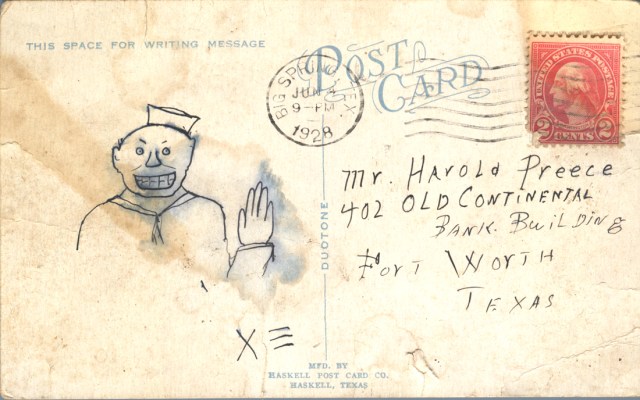 THIS SPACE FOR WRITING MESSAGE
POST CARD
BIG SPRING TEX.
JUN
9-PM
1928
UNITED STATES POSTAGE
2 CENTS 2
Mr. Harold Preece
402 OLD CONTINENTAL
BANK. BuilDing
Fort Worth
Texas
DUOTONE
X
MFD. BY
HASKELL POST CARD CO.
HASKELL, TEXAS